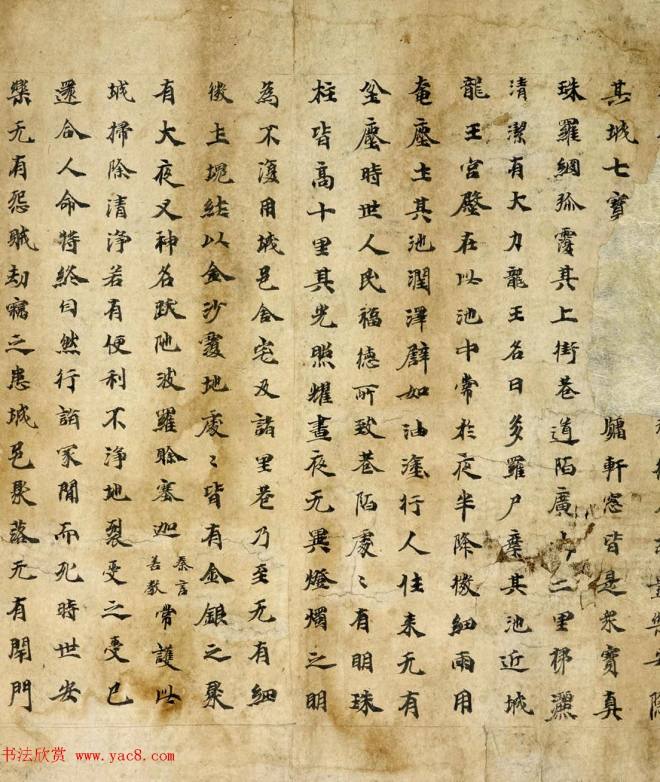 其城七寶牖軒窓皆是眾寶真
珠羅網弥覆其上街巷道陌廣十二里掃灑
清潔有大力龍王名曰多羅尸棄其池近城
龍王宮殿在此池中常於夜半降微細雨用
奄塵土其池潤澤譬如油塗行人往来无有
坌塵時世人民福德所致巷陌處〻有明珠
柱皆高十里其光照耀晝夜无異燈燭之明
為不復用城邑舍宅及諸里巷乃至无有細
微土塊純以金沙覆地處〻皆有金銀之聚
有大夜叉神名跋陀波羅賒塞迦秦言善教常護此
城掃除清淨若有便利不淨地裂受之受已
還合人命將終自然行詣冢間而死時世安
樂无有怨賊劫竊之患城邑聚落无有閉門
书法欣赏 www.yac8.com